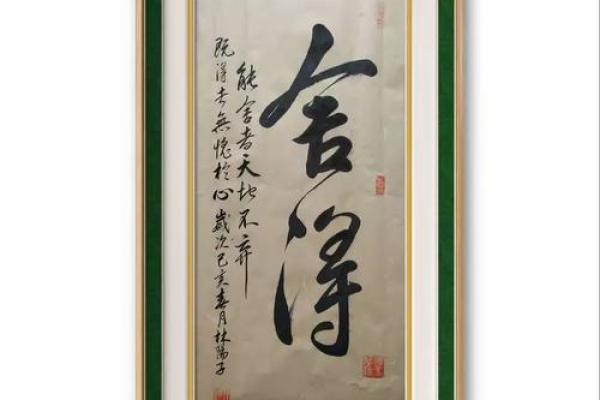 舍得
能舍者天地不弃
既得者無愧於心 歲次己亥春月林陽子